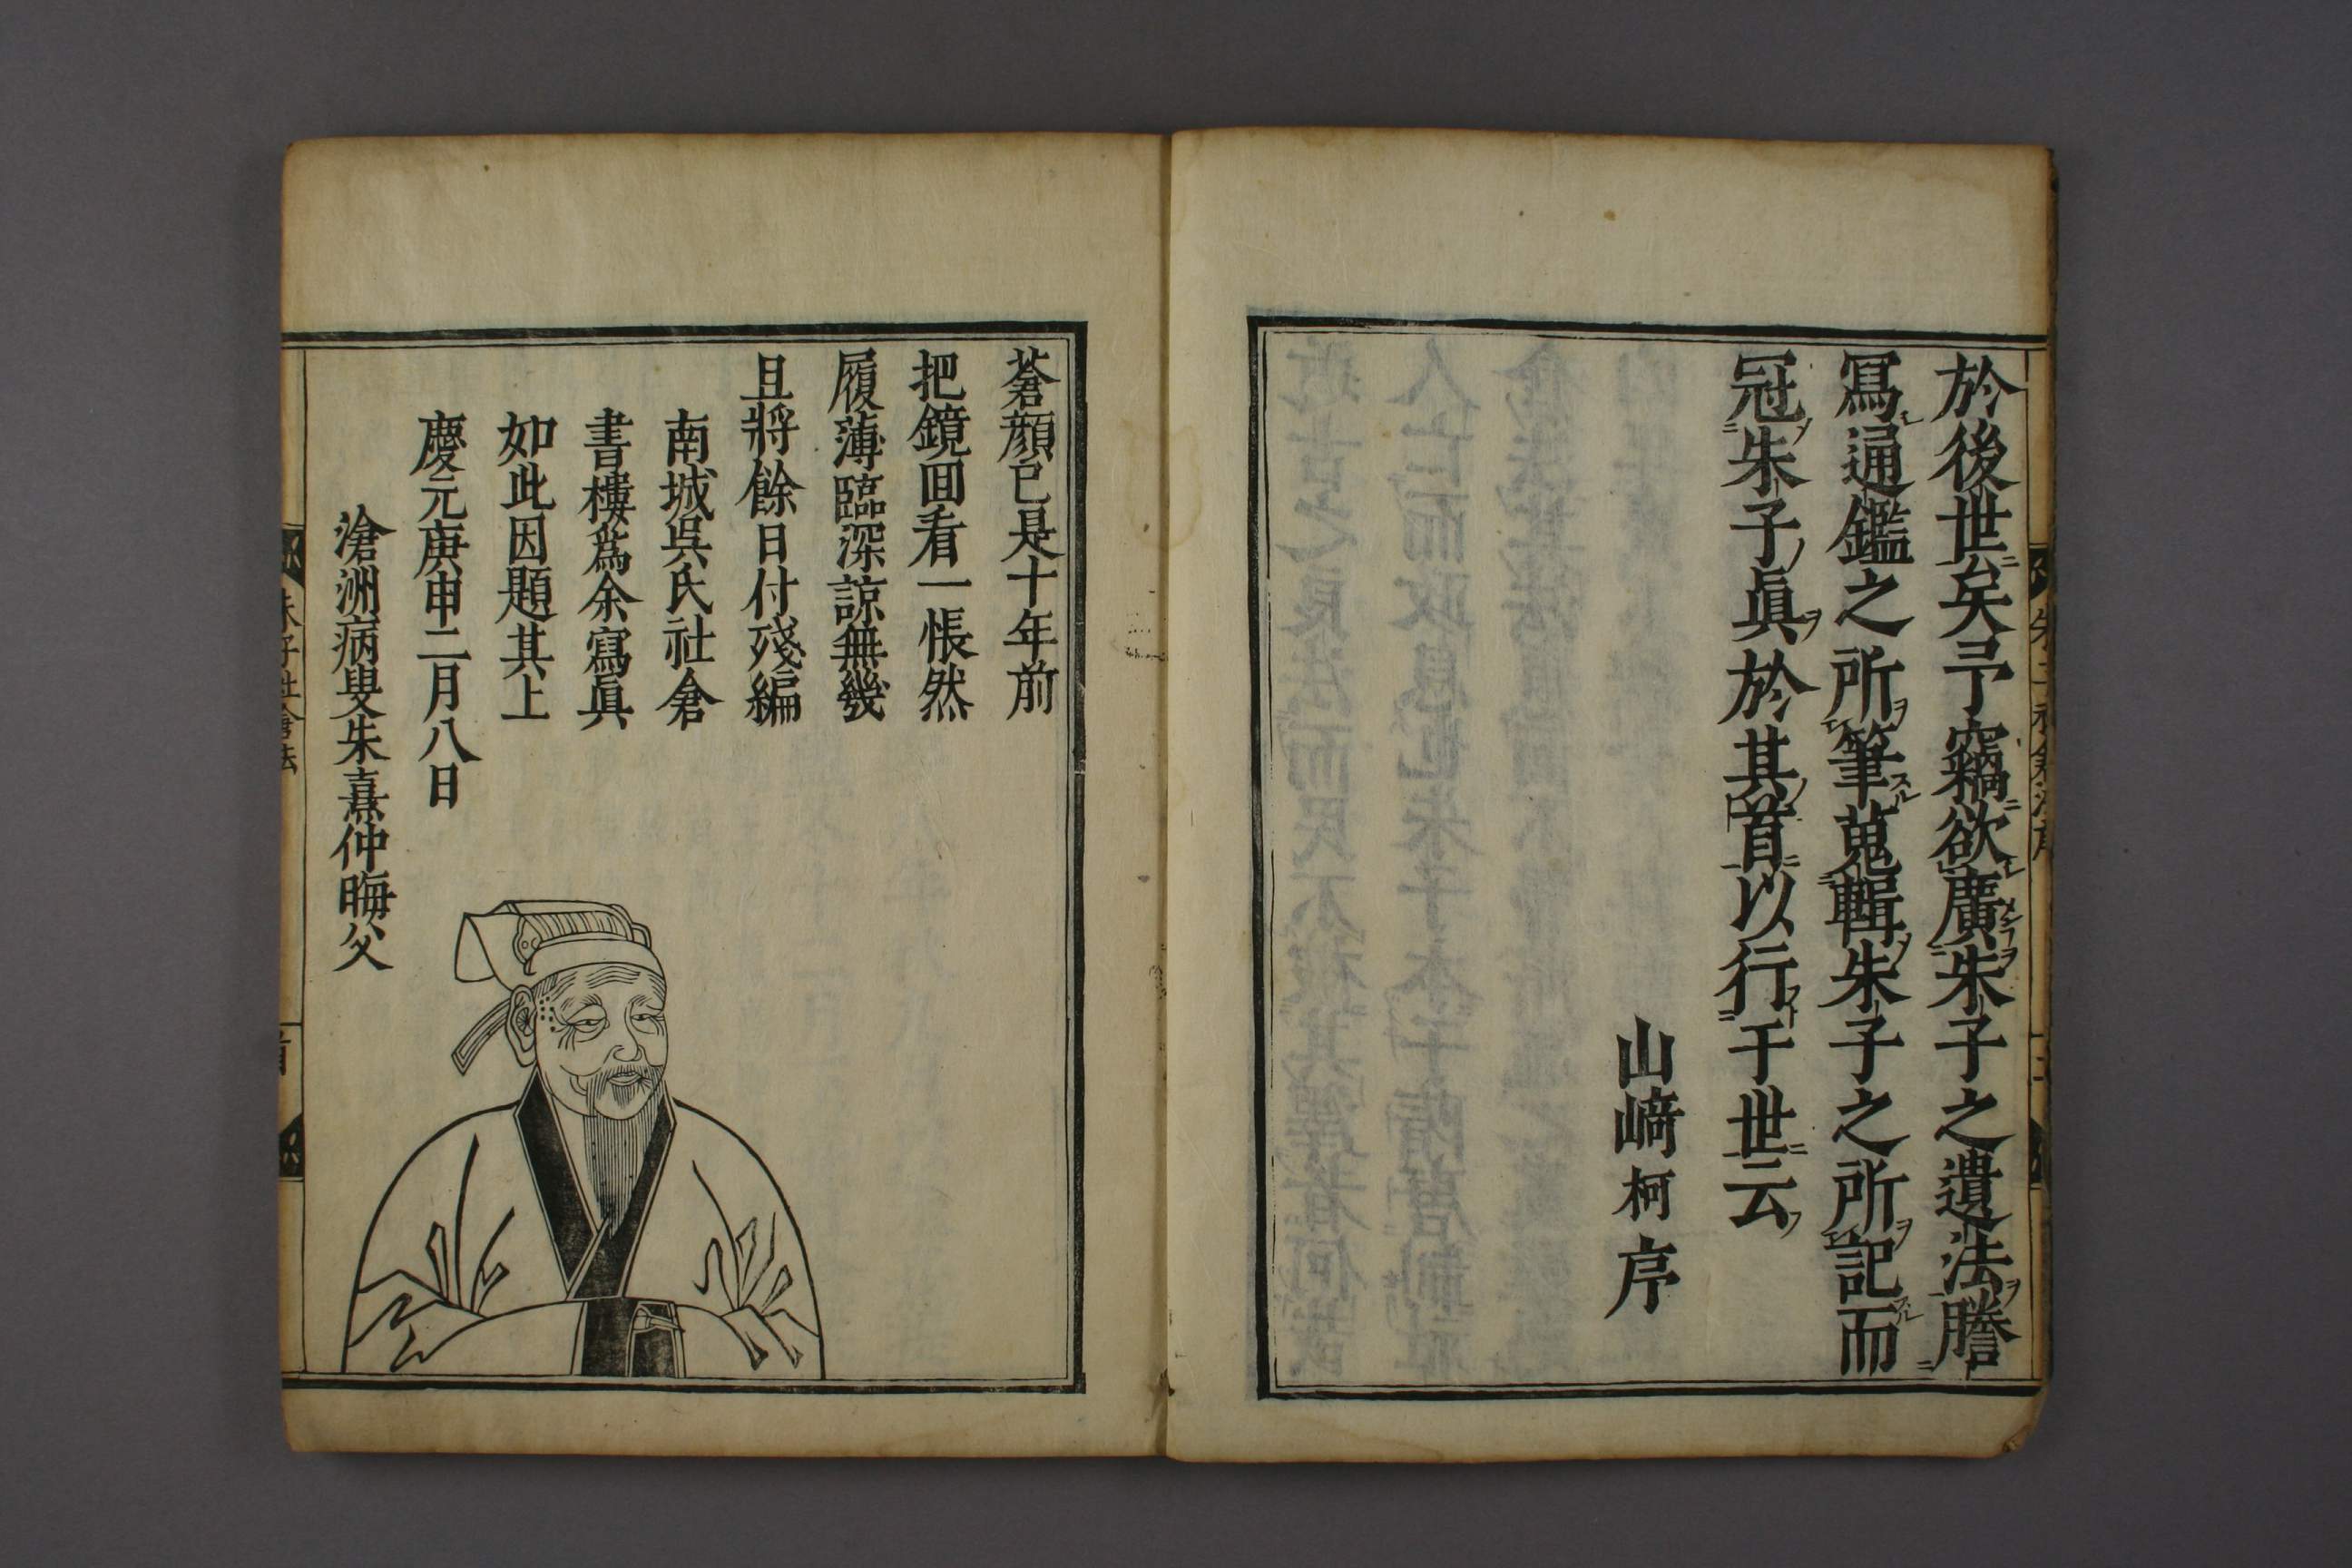 於後世矣予竊欲廣朱子之遺法謄
寫通鑑之所筆蒐輯朱子之所記而
冠朱子眞於其首以行于世云
山﨑柯序
蒼顏已是十年前
把鏡回看一悵然
履薄臨深諒無幾
且將餘日付殘編
南城吳氏社倉
書樓爲余寫眞
如此因題其上
慶元庚申二月八日
滄洲病叟朱熹仲晦父
朱子社倉法
首